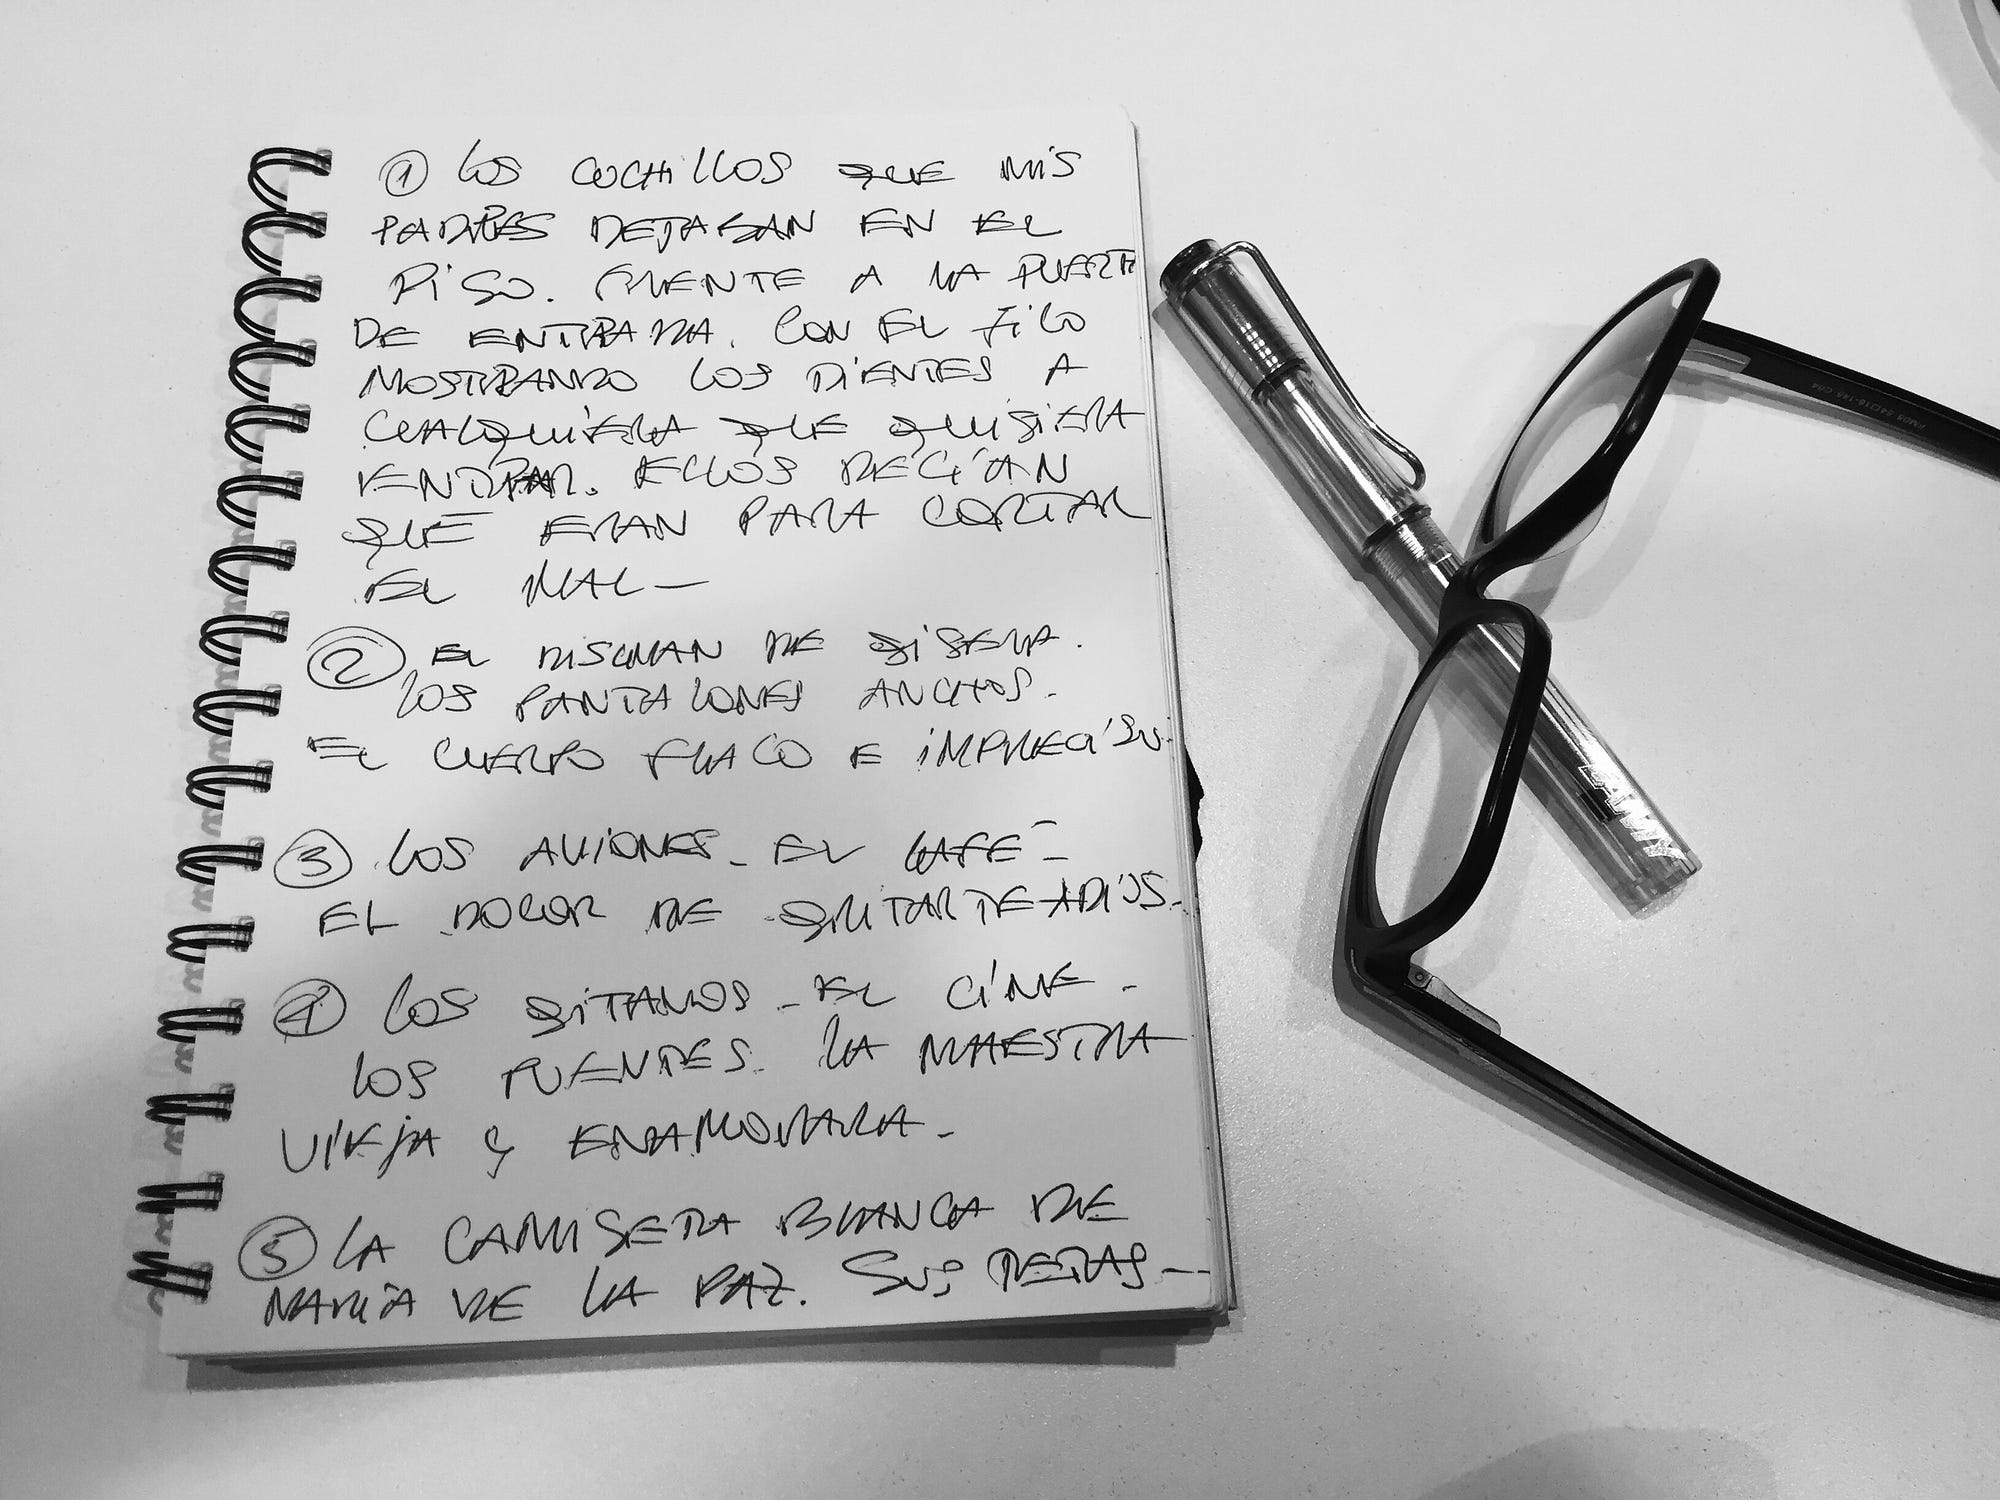 ① LOS CUCHILLOS QUE MIS
PADRES DEJABAN EN EL
PISO. FRENTE A LA PUERTA
DE ENTRADA. CON EL FILO
MOSTRANDO LOS DIENTES A
CUALQUIERA QUE QUISIERA
ENTRAR. ELLOS DECÍAN
QUE ERAN PARA CORTAR
EL MAL —
② EL DISCMAN DE GISELA.
LOS PANTALONES ANCHOS.
EL CUERPO FLACO E IMPRECISO.
③ LOS AVIONES - EL CAFÉ -
EL DOLOR DE GRITARTE ADIÓS.
④ LOS GITANOS - EL CINE -
LOS PUENTES. LA MAESTRA
VIEJA Y ENAMORADA -
⑤ LA CAMISETA BLANCA DE
MARÍA DE LA PAZ. SUS TETAS --
LAMY